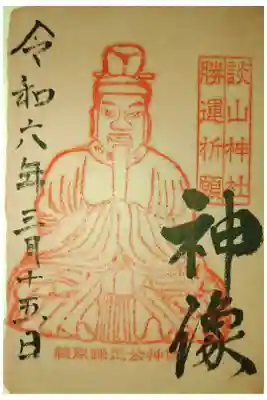 談山神社
勝運祈願
神像
藤原鎌足公神像
令和六年三月十五日